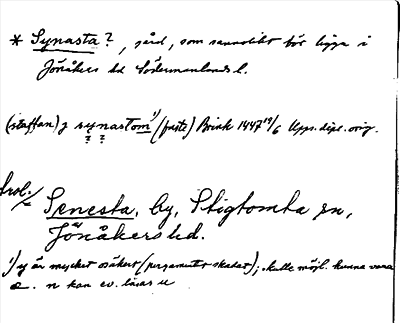 * Synasta?, gård, som sannolikt bör ligga i
Jönåkers hd Södermanlands l.
(staffan) j synastom 1) (faste) Brink 1447 19/6 Upps. dipl. orig.
? ?
trol. /
Senesta, by, Stigtomta sn,
Jönåkers hd.
1) y är mycket osäkert (pergamentet skadat); skulle möjl. kunna vara
e. n kan ev. läsas u